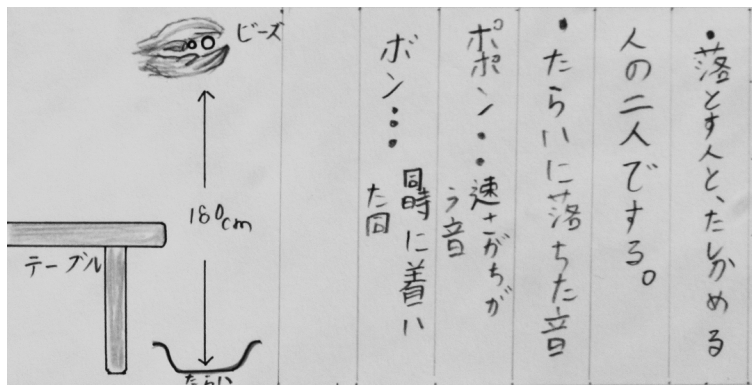 ・落とす人と、たしかめる
人の二人でする。
・たらいに落ちた音
ポポン・・速さがちが
う音
ボン・・・同時に着い
た同
ビーズ
180cm
テーブル
たらい